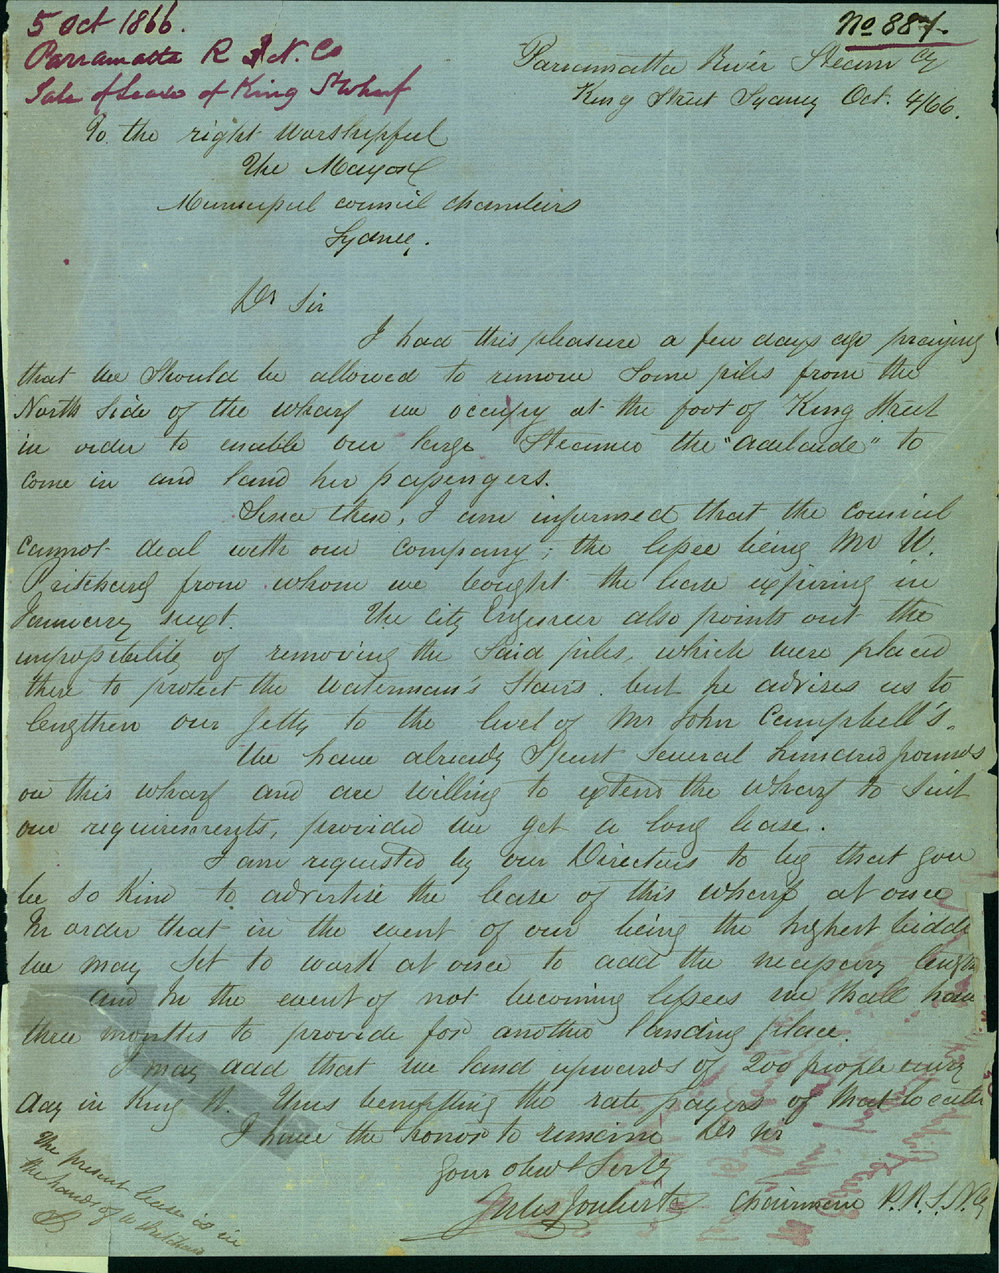 5 Oct 1866.
Parramatta R S N. Co
Sale of Lease of King St Wharf
No 887.
Parramatta River Steam Cy
King Street Sydney Oct. 4/66.
To the right Worshipful
The Mayor
Municipal council chambers
Sydney.
Dr Sir
I had this pleasure a few days ago praying
that we should be allowed to remove some piles from the
North side of the wharf we occupy at the foot of King Street
in order to enable our large Steamer the "Adelaide" to
come in and land her passengers.
Since then, I am informed that the council
cannot deal with our company; the lessee being Mr W.
Pritchard from whom we bought the lease expiring in
January next. The City Engineer also points out the
impossibility of removing the said piles, which were placed
there to protect the Waterman's Stairs. but he advises us to
lengthen our Jetty to the level of Mr John Campbell's.
We have already spent several hundred pounds
on this wharf and are willing to extend the wharf to suit
our requirements, provided we get a long lease.
I am requested by our Directors to beg that you
be so kind to advertise the lease of this wharf at once
In order that in the event of our being the highest bidde
we may set to work at once to add the necessary length
and In the event of not becoming lessees we shall have
three months to provide for another landing place.
I may add that we land upwards of 200 people every
day in King St. thus benefitting the rate payers of that locality
I have the honor to remain Dr Sir
Your obedt Servt
Jules Joubert Chairman P.R.S.N.Cy
The present lease is in
the hands of W Pritchard